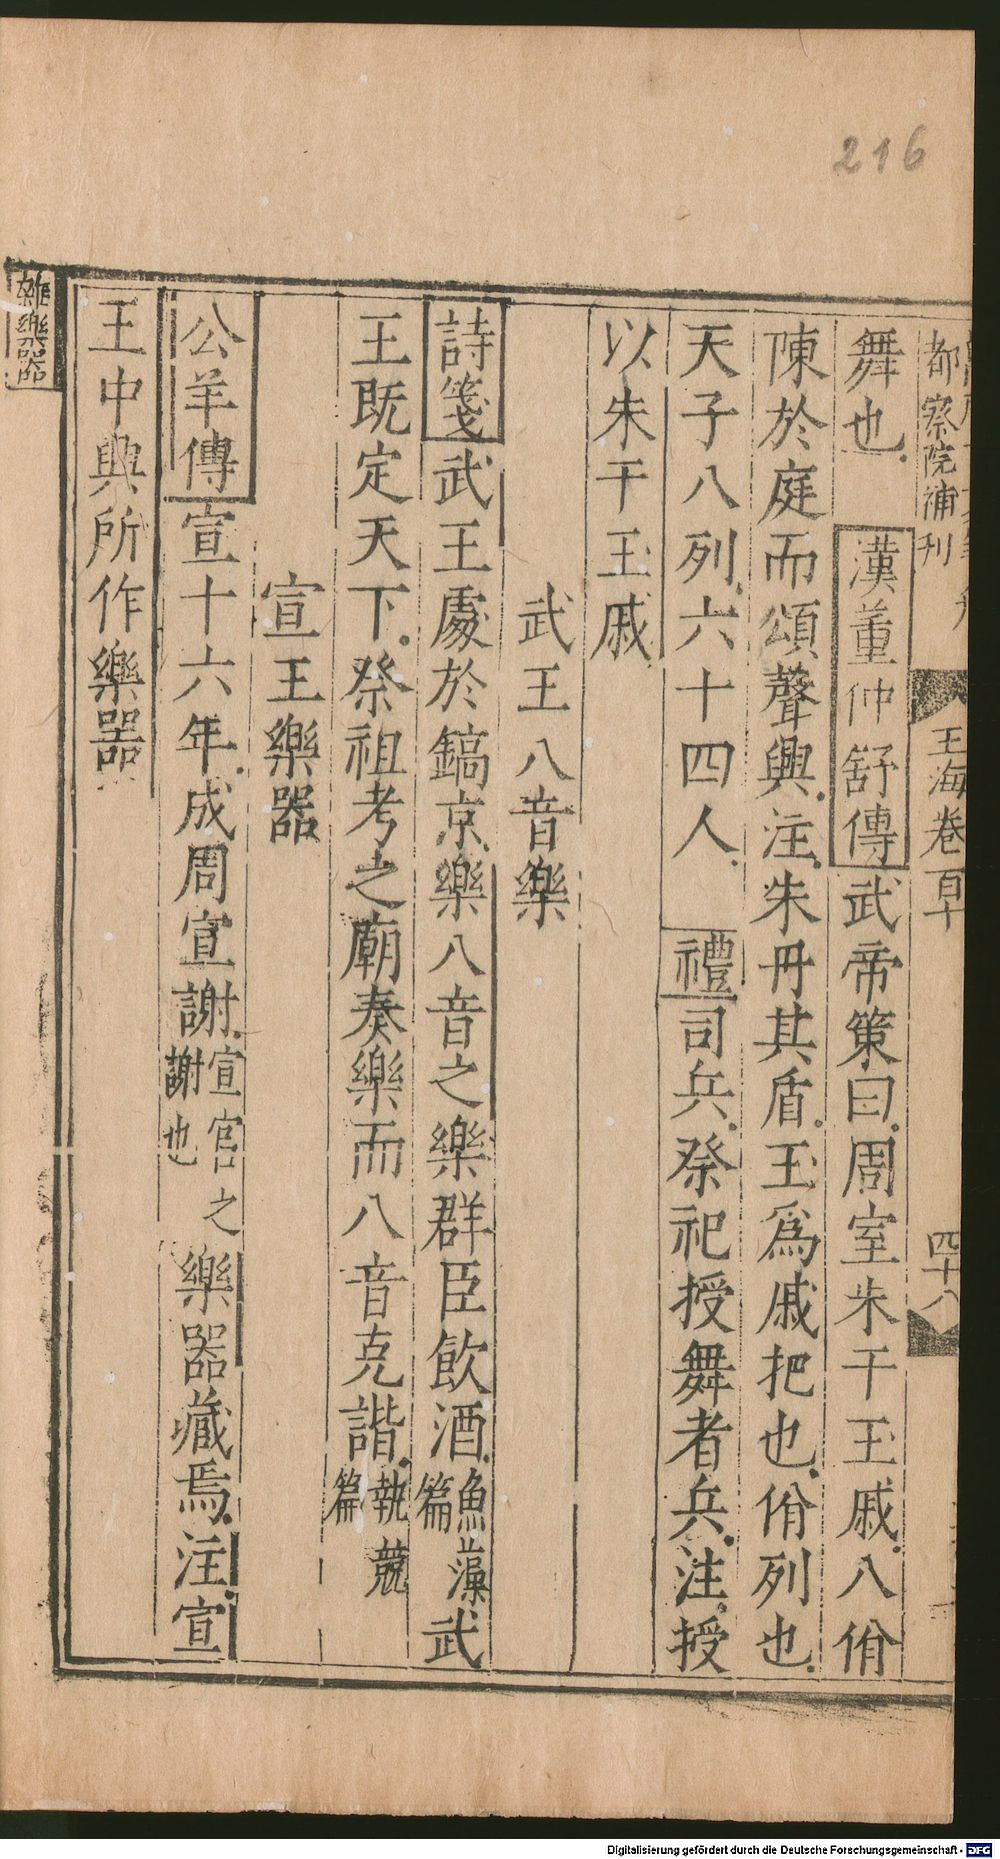 216
都察院補刊
玉海卷百十
四十八
舞也漢董仲舒傳武帝策曰周室朱干玉戚八佾
陳於庭而頌聲興注朱丹其盾玉爲戚把也佾列也
天子八列六十四人禮司兵祭祀授舞者兵注授
以朱干玉戚
武王八音樂
詩箋武王處於鎬京樂八音之樂群臣飲酒魚藻篇武
王既定天下祭祖考之廟奏樂而八音克諧執競篇
宣王樂器
公羊傳宣十六年成周宣謝宣宮之謝也樂器藏焉注宣
王中興所作樂器
雜樂器
Digitalisierung gefördert durch die Deutsche Forschungsgemeinschaft - DFG